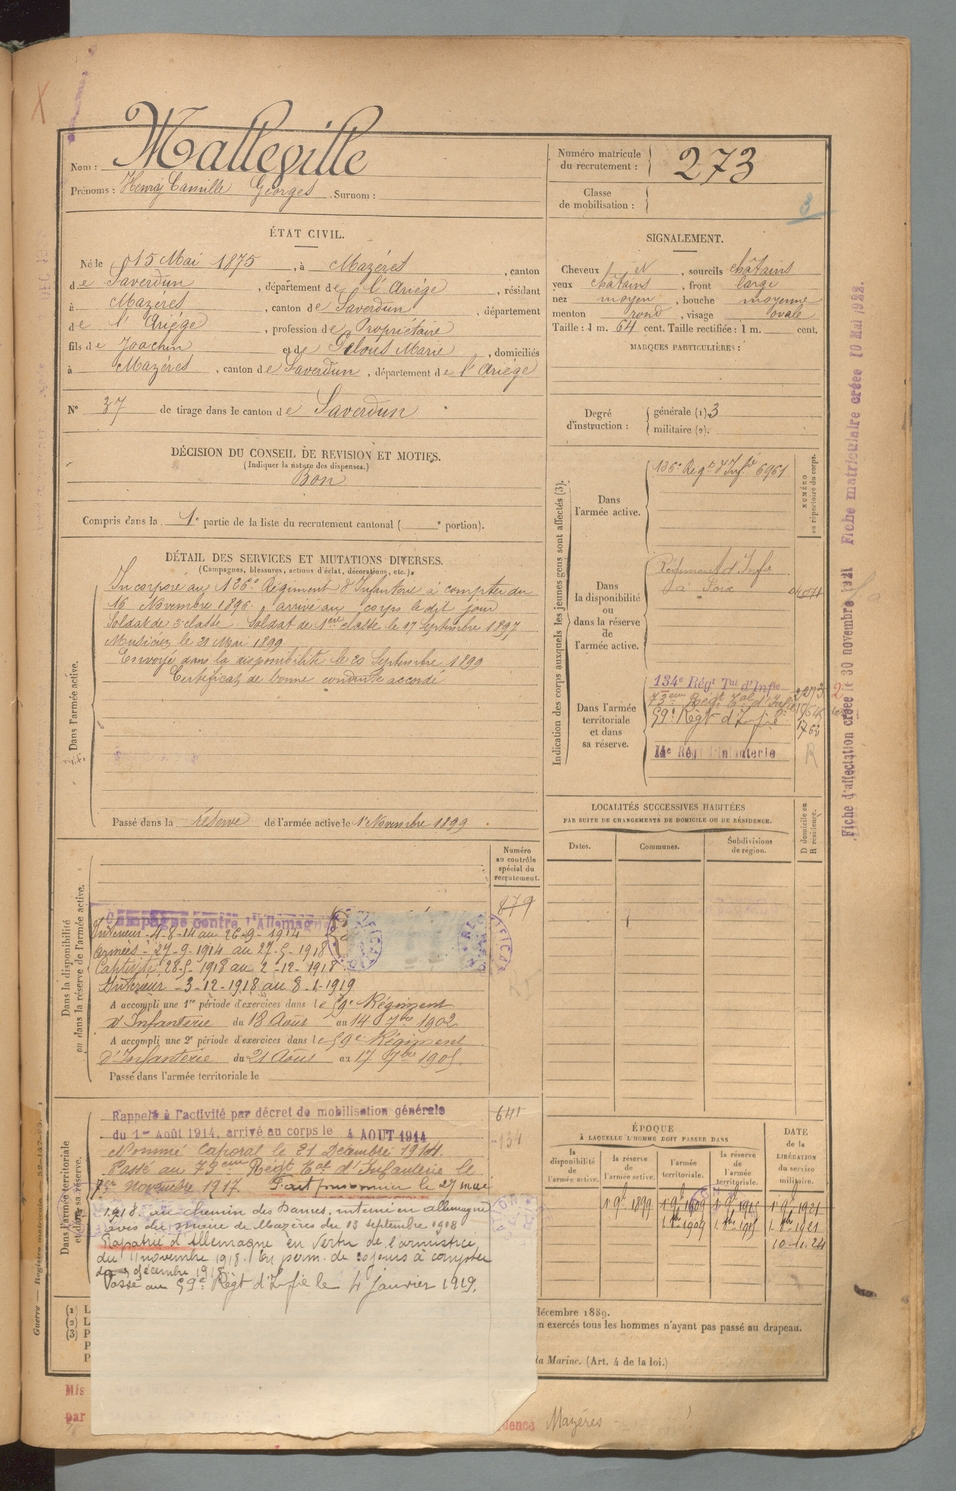 Nom : Malleville
Prénoms : Henry Camille Georges . Surnom :
Numéro matricule
du recrutement : 273
Classe
de mobilisation :
ÉTAT CIVIL.
Né le 15 Mai 1875 , à Mazéres , canton
de Saverdun , département de l'Ariége , résidant
à Mazéres , canton de Saverdun , département
de l'Ariége , profession de Propriétaire
fils de Joachin et de Marie , domiciliés
à Mazéres , canton de Saverdun , département de l'Ariége
N° 37 de tirage dans le canton de Saverdun
DÉCISION DU CONSEIL DE REVISION ET MOTIFS.
(Indiquer la nature des dispenses.)
Bon
Compris dans la 1e partie de la liste du recrutement cantonal ( e portion).
SIGNALEMENT.
Cheveux et , sourcils châtains
yeux châtains , front large
nez moyen , bouche moyenne
menton rond , visage ovale
Taille : 1 m. 64 cent. Taille rectifiée : 1 m. cent.
MARQUES PARTICULIÈRES :
Degré
d'instruction :
générale (1). 3
militaire (2).
DÉTAIL DES SERVICES ET MUTATIONS DIVERSES.
(Campagnes, blessures, actions d'éclat, décorations, etc.)
Dans l'armée active.
Incorporé au 126e Régiment d'Infanterie à compter du
16 Novembre 1896, arrivé au corps le dit jour
Soldat de 2e classe Soldat de 1ère classe le 17 Septembre 1897
Musicien le 21 Mai 1899
Envoyé dans la disponibilité le 20 Septembre 1899
Certificat de bonne conduite accordé
Passé dans la réserve de l'armée active le 1er Novembre 1899
Indication des corps auxquels les jeunes gens sont affectés (3).
Dans
l'armée active.
Regt d'Infie 6961
NUMÉRO
au répertoire du corps.
Dans
la disponibilité
ou
dans la réserve
de
l'armée active.
Régiment d'Infie
Dans l'armée
territoriale
et dans
sa réserve.
134e Régt Tal d'Infie
Régt Tal d'Infie
59e Régt d'Infie
14e Régt d'Infanterie
Fiche d'affectation créée le 30 novembre 1921
Fiche matriculaire créée 10 Mai 1922.
LOCALITÉS SUCCESSIVES HABITÉES
PAR SUITE DE CHANGEMENTS DE DOMICILE OU DE RÉSIDENCE.
Dates.
Communes.
Subdivisions
de région.
D domicile ou
R résidence.
Dans la disponibilité
ou dans la réserve de l'armée active.
Numéro
au contrôle
spécial du
recrutement.
479
Campagne contre l'Allemagne
Intérieur 4-8-14 au 26-9-1914
Armées - 27-9-1914 au 27-5-1918
Captivité 28-5-1918 au 2-12-1918
Intérieur - 3-12-1918 au 8-1-1919
A accompli une 1re période d'exercices dans le 59e Régiment
d'Infanterie du 18 Août au 14 7bre 1902
A accompli une 2e période d'exercices dans le 59e Régiment
d'Infanterie du 21 Août au 17 7bre 1905.
Passé dans l'armée territoriale le
Dans l'armée territoriale
et dans sa réserve.
Rappelé à l'activité par décret de mobilisation générale
du 1er Août 1914, arrivé au corps le 4 AOUT 1914
Nommé Caporal le 21 Décembre 1914.
Passé au Régt Tal d'Infanterie le
novembre 1917. Fait prisonnier le 27 mai
1918 au chemin des Dames, interné en Allemagne
avis du maire de Mazéres du 13 septembre 1918
Rapatrié d'Allemagne en vertu de l'armistice
du 11 novembre 1918. En perm. de 30 jours à compter
du décembre 1918
Passé au 59e Régt d'Infie le 4 Janvier 1919.
641
134
ÉPOQUE
À LAQUELLE L'HOMME DOIT PASSER DANS
la
disponibilité
de
l'armée active.
la réserve
de
l'armée active.
l'armée
territoriale.
la réserve
de
l'armée
territoriale.
DATE
de la
LIBÉRATION
du service
militaire.
1 9bre 1899
1 8bre 1909
10-11-24
décembre 1889.
n exercés tous les hommes n'ayant pas passé au drapeau.
la Marine. (Art. 4 de la loi.)
Mis
par
dence Mazéres